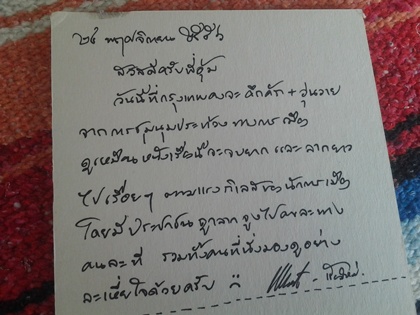 ๒๔ พฤศจิกายน ๒๕๕๖
สวัสดีครับพี่อุ้ม
วันนี้ที่กรุงเทพคงจะคึกคัก + วุ่นวาย
จากการชุมนุมประท้วงทางการเมือง
ดูเหมือนหนังเรื่องนี้จะจบยากและลากยาว
ไปเรื่อยๆ ตามแรงกิเลสของนักการเมือง
โดยมีประชาชนถูกลากจูงไปคนละทาง
คนละที่ รวมทั้งคนที่นั่งมองดูอย่าง
ละเหี่ยใจด้วยครับ